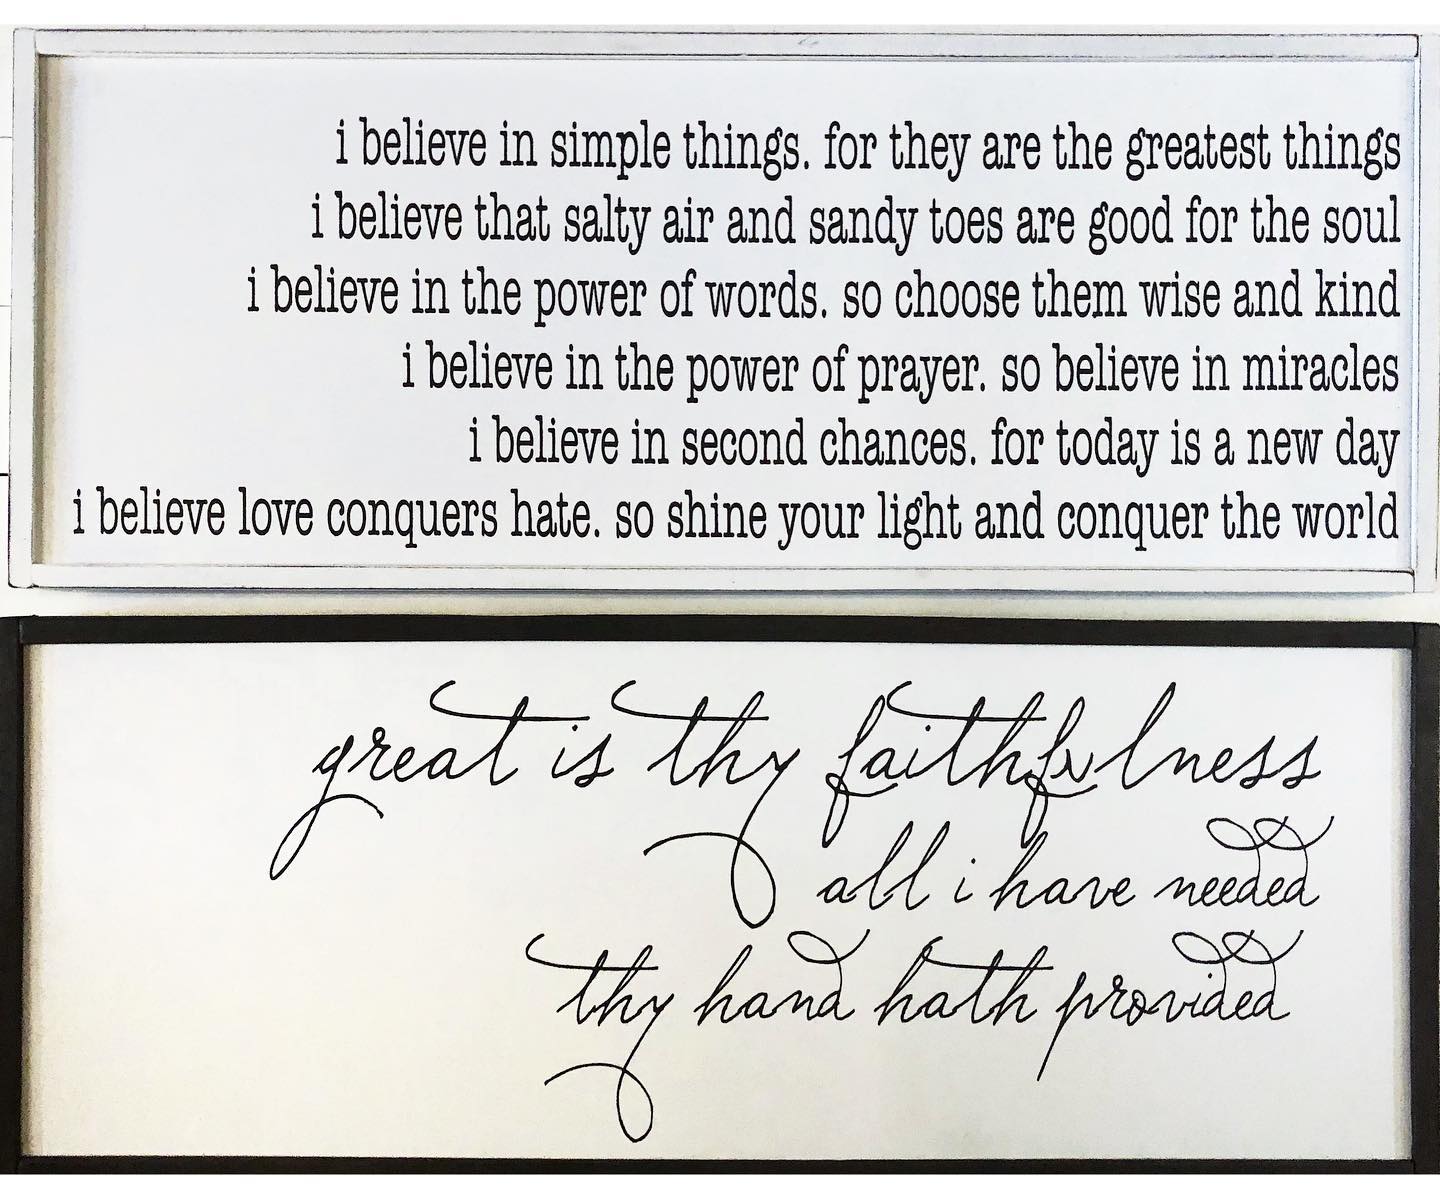 i believe in simple things. for they are the greatest things
i believe that salty air and sandy toes are good for the soul
i believe in the power of words. so choose them wise and kind
i believe in the power of prayer. so believe in miracles
i believe in second chances. for today is a new day
i believe love conquers hate. so shine your light and conquer the world
great is thy faithfulness
all i have needed
thy hand hath provided